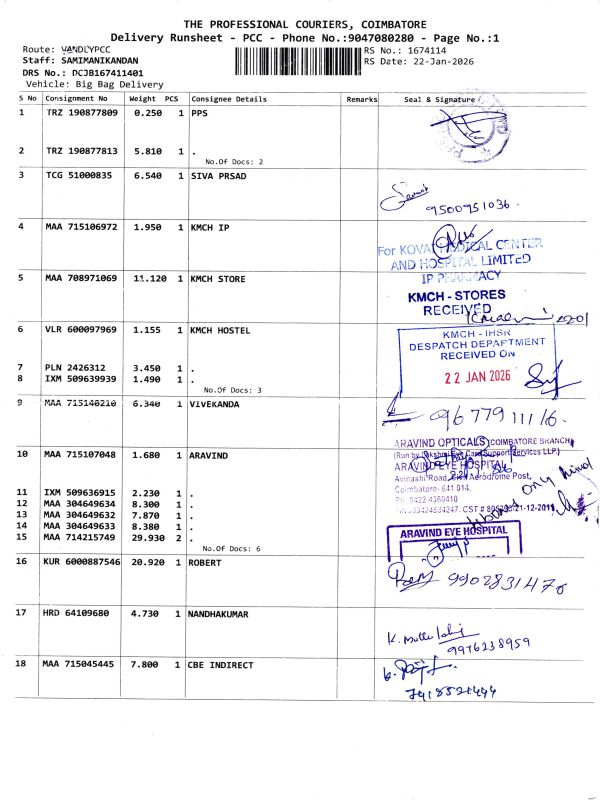 THE PROFESSIONAL COURIERS, COIMBATORE
Delivery Runsheet - PCC - Phone No.:9047080280 - Page No.:1
Route: VANDLYPCC
RS No.: 1674114
Staff: SAMIMANIKANDAN
RS Date: 22-Jan-2026
DRS No.: DCJB167411401
Vehicle: Big Bag Delivery
S No Consignment No Weight PCS Consignee Details Remarks Seal & Signature
1 TRZ 190877809 0.250 1 PPS
2 TRZ 190877813 5.810 1 .
No.Of Docs: 2
3 TCG 51000835 6.540 1 SIVA PRSAD
9500951036
4 MAA 715106972 1.950 1 KMCH IP
For KOVAI MEDICAL CENTER
AND HOSPITAL LIMITED
IP PHARMACY
5 MAA 708971069 11.120 1 KMCH STORE
KMCH - STORES
RECEIVED
6 VLR 600097969 1.155 1 KMCH HOSTEL
KMCH - IHSR
DESPATCH DEPARTMENT
RECEIVED ON
22 JAN 2026
7 PLN 2426312 3.450 1 .
8 IXM 509639939 1.490 1 .
No.Of Docs: 3
9 MAA 715140210 6.340 1 VIVEKANDA
9677911116
10 MAA 715107048 1.680 1 ARAVIND
ARAVIND OPTICALS (COIMBATORE BRANCH)
ARAVIND EYE HOSPITAL
Avinashi Road, Civil Aerodrome Post,
Coimbatore- 641 014.
11 IXM 509636915 2.230 1 .
12 MAA 304649634 8.300 1 .
13 MAA 304649632 7.870 1 .
14 MAA 304649633 8.380 1 .
15 MAA 714215749 29.930 2 .
No.Of Docs: 6
ARAVIND EYE HOSPITAL
16 KUR 6000887546 20.920 1 ROBERT
9902831476
17 HRD 64109680 4.730 1 NANDHAKUMAR
9976238959
18 MAA 715045445 7.800 1 CBE INDIRECT